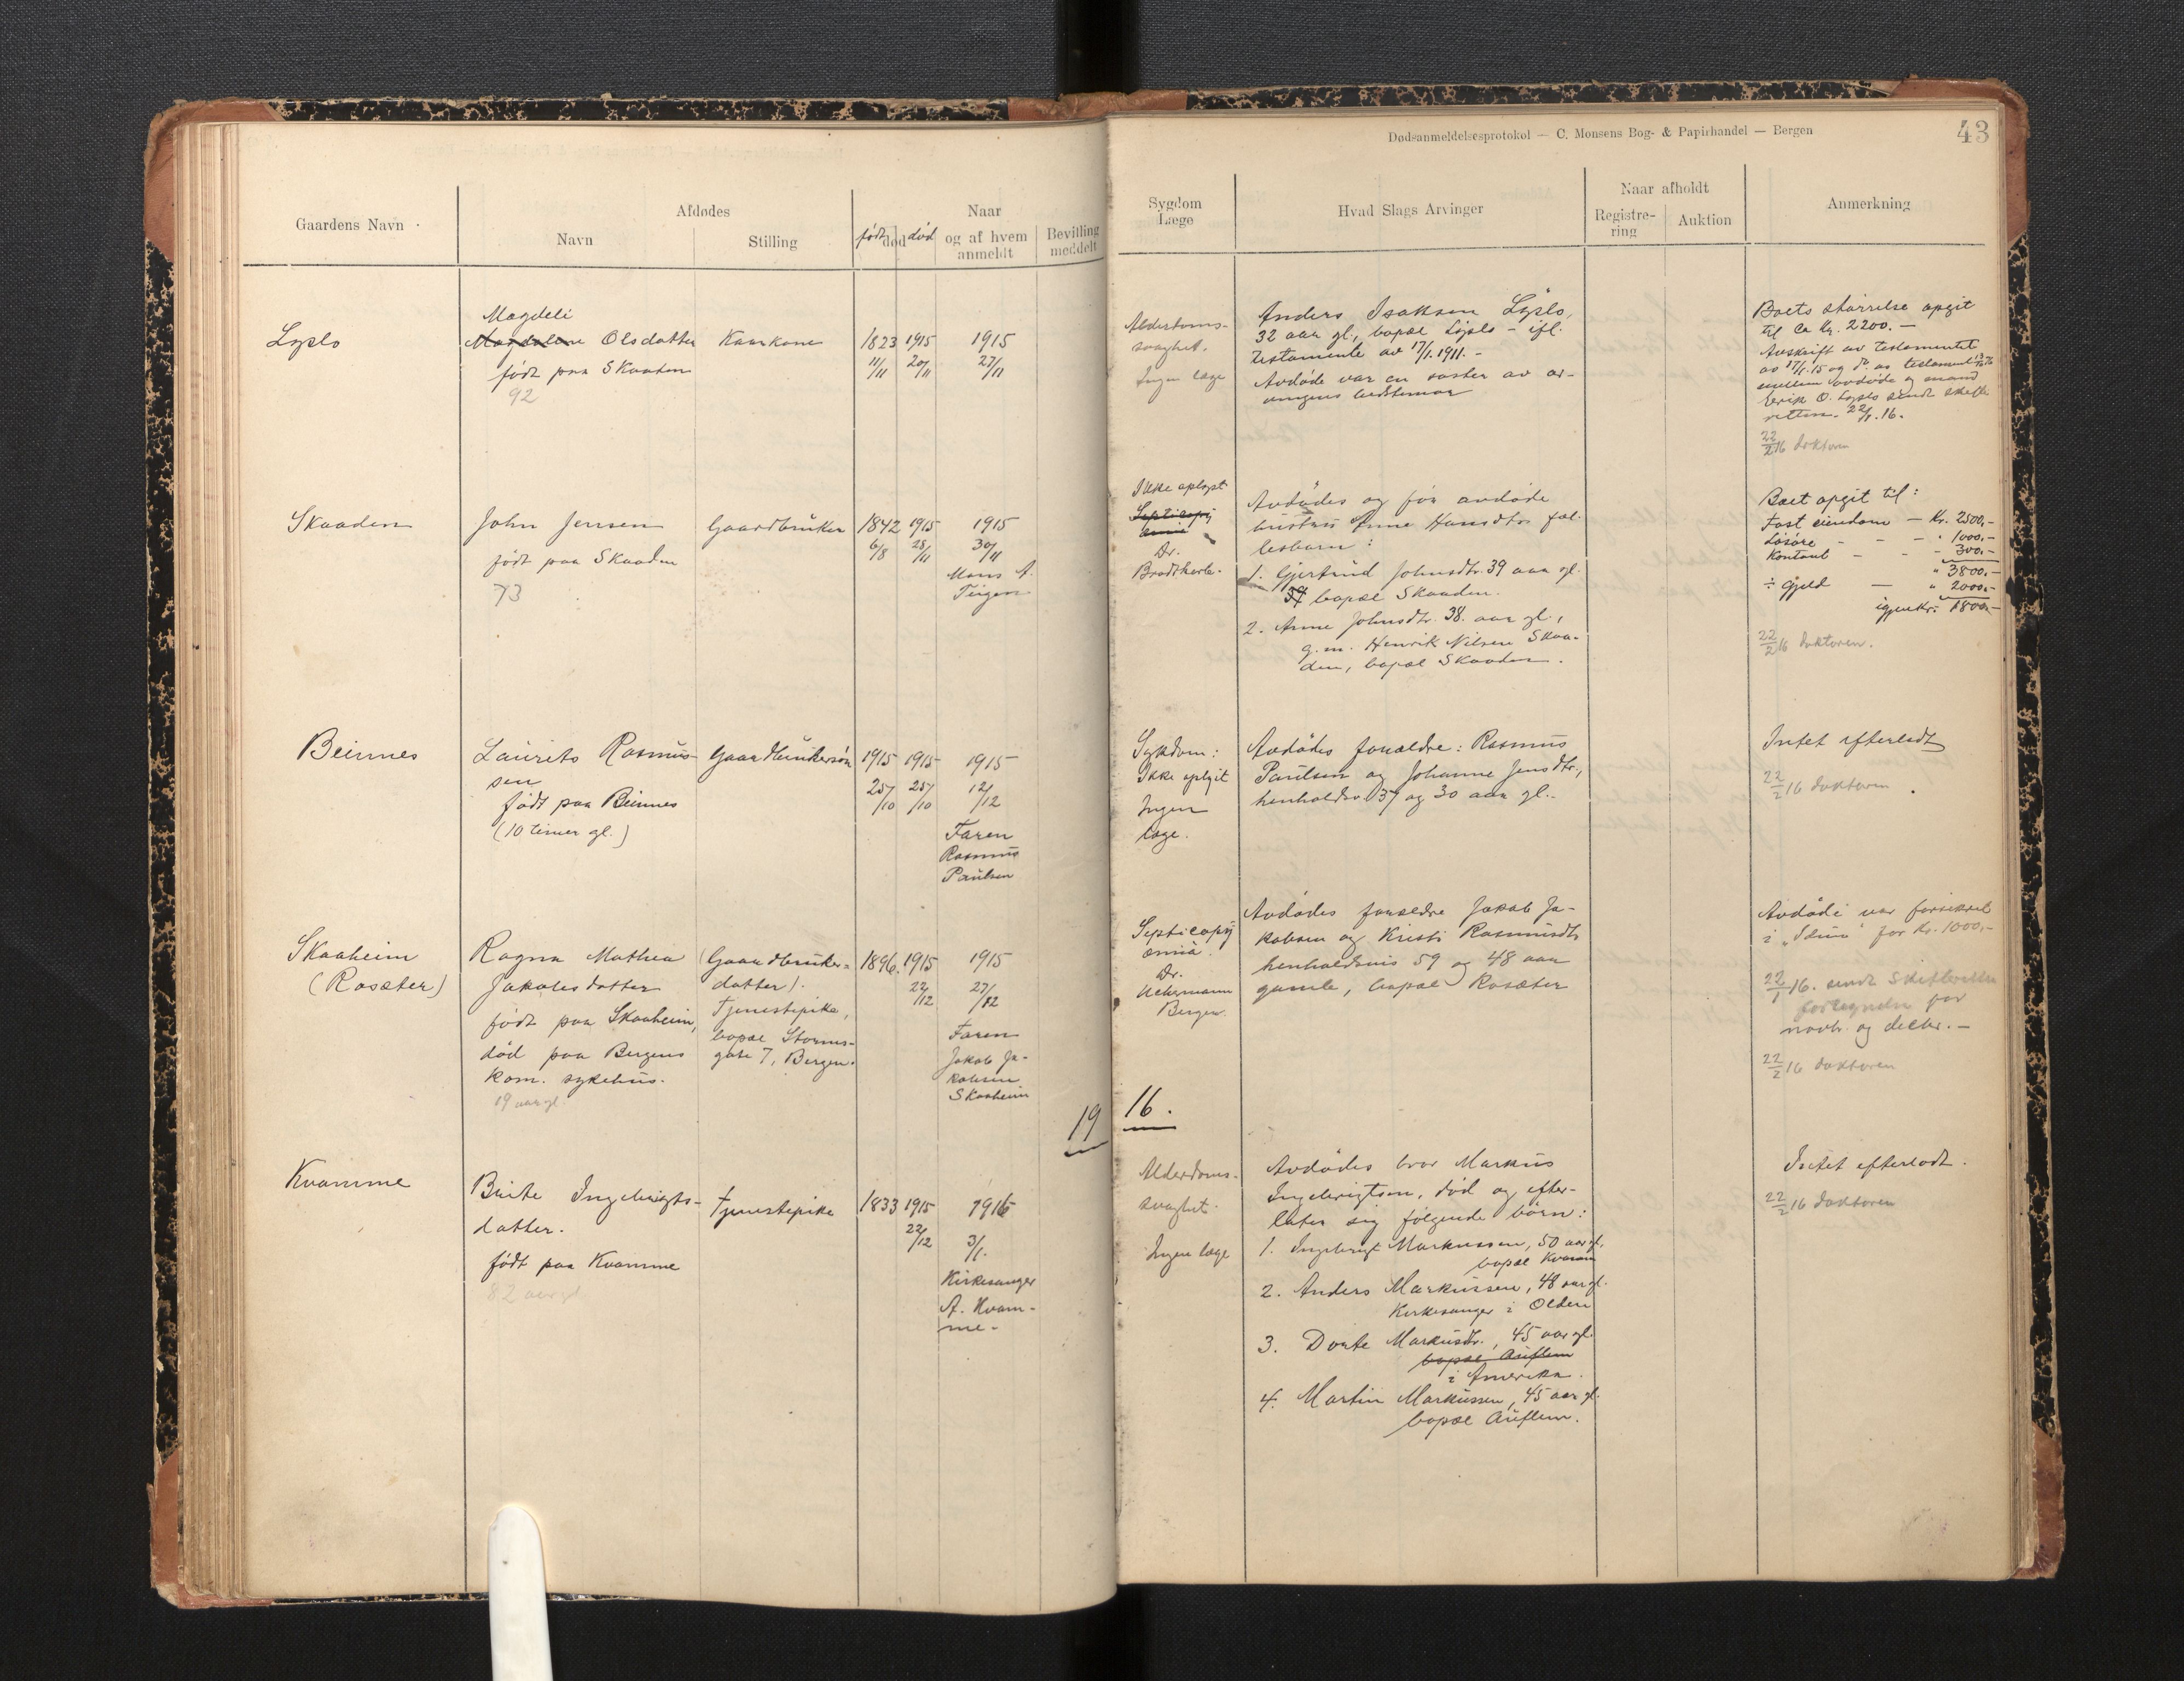 Dødsanmeldelsesprotokol — C. Monsens Bog- & Papirhandel — Bergen
43
Gaardens Navn
Afdødes
Navn
Stilling
født død død
Naar
og af hvem
anmeldt
Bevilling
meddelt
Sygdom
Læge
Hvad Slags Arvinger
Naar afholdt
Registre-
ring
Auktion
Anmerkning
Løplo
Magdeli
Magdalene Olsdatter
født paa Skaaden
92
Kaarkone
1823 11/11
1915 20/11
1915
27/11
Alderdoms-
svaghet.
Ingen læge
Anders Isaksen Löplo,
32 aar gl., bopæl Löplo - ifl.
testamente av 17/1.1911.-
Avdøde var en søster av ar-
vingens bedstemor
Boets størrelse opgit
til ca Kr. 2200.-
Avskrift av testamentet
av 17/1.15 og do. av testament
mellem avdøde og mand
Eerik O. Løplo sendt skifte-
retten. 22/1.16.
22/2 16 doktoren
Skaaden
John Jensen
født paa Skaaden
73
Gaardbruker
1842 6/8
1915 28/11
1915
30/11
Mons A.
Teigen
Ikke oplyst
Septicopy
æmia
Dr.
Bradtkorb.
Avdödes og før avdøde
hustrus Anne Hansdtr. fæl-
lesbarn:
1. Gjertrud Johnsdtr. 39 aar gl.
bopæl Skaaden.
2. Anne Johnsdtr. 38. aar gl.,
g.m. Henrik Nilsen Skaa-
den, bopæl Skaaden.
Boet opgit til:
Fast eiendom — Kr. 2500,-
Løsøre - - - " 1000.-
Kontant - - - 300.-
" 3800.-
÷ Gjeld — " 2000.-
igjen Kr: 1800.-
22/2 16 doktoren.
Beinnes
Laurits Rasmus-
sen
født paa Beinnes
(10 timer gl.)
Gaardbrukersøn
1915 25/10
1915 25/10
1915
12/12
Faren
Rasmus
Paulsen
Sykdom:
Ikke oplyst
Ingen
læge.
Avdødes forældre: Rasmus
Paulsen og Johanne Jensdtr.,
henholdsv. 37 og 30 aar gl.-
Intet efterladt
22/2 16 doktoren
Skaaheim
(Rosæter)
Ragna Mathea
Jakobsdatter
født paa Skaaheim,
død paa Bergens
kom. sykehus.
19 aar gl.
(Gaardbruker-
datter).
Tjenestepike,
bopæl Storms-
gate 7, Bergen.
1896.
1915 22/12
1915
27/12
Faren
Jakob Ja-
kobsen
Skaaheim
Septicopy
æmia.
Dr.
Uchermann
Bergen.
Avdødes forældre Jakob Ja-
kobsen og Kristi Rasmusdtr
henholdsvis 59 og 48 aar
gamle, bopæl Rosæter
Avdøde var forsikret
i "Idun" for Kr. 1000,-
22/1 16. sendt Skifteretten
fortegnelse for
novbr. og decbr. -
22/2 16 doktoren
19 16.
Kvamme
Brite Ingebrigts-
datter.
født paa Kvamme
82 aar gl.
Tjenestepike
1833
1915 22/12
1916
3/1.
Kirkesanger
A. Kvam-
me-
Alderdoms-
svaghet.
Ingen læge
Avdødes bror Markus
Ingebrigtsen, død og efter-
later sig følgende börn:
1. Ingebrigt Markussen, 50 aar gl.
bopæl Kvamm
2. Anders Markussen, 48 aar gl.
Kirkesanger i Olden
3. Dorte Markusdtr., 45 aar gl.
bopæl Auflem
i Amerika.
4. Martin Markussen, 45 aar gl.
bopæl Auflem.
Intet efterladt.
22/2 16 doktoren